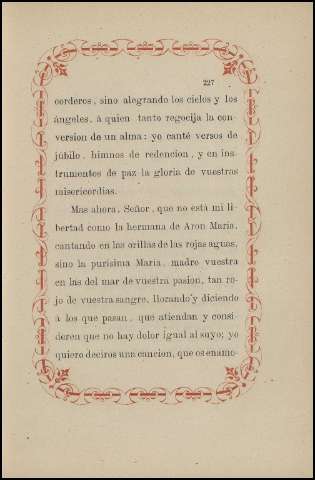 227
corderos, sino alegrando los cielos y los
ángeles, á quien tanto regocija la con-
version de un alma: yo canté versos de
júbilo, himnos de redencion, y en ins-
trumentos de paz la gloria de vuestras
misericordias.
Mas ahora, Señor, que no está mi li-
bertad como la hermana de Aron Maria,
cantando en las orillas de las rojas aguas,
sino la purísima Maria, madre vuestra
en las del mar de vuestra pasion, tan ro-
jo de vuestra sangre, llorando y diciendo
á los que pasan, que atiendan y consi-
deren que no hay dolor igual al suyo; yo
quiero deciros una cancion, que os enamo-